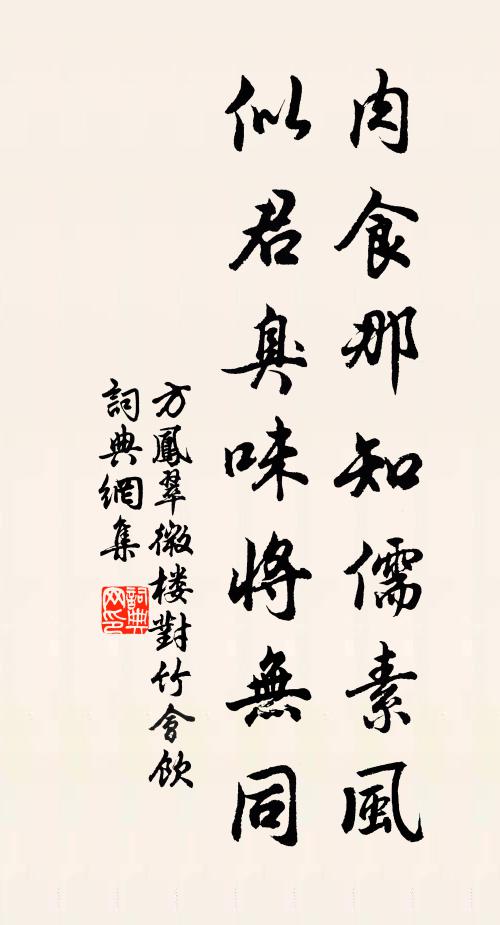 肉食那知儒素風
似君臭味將無同
方鳳翠微楼對竹會飲
詞典網集
詞典网印